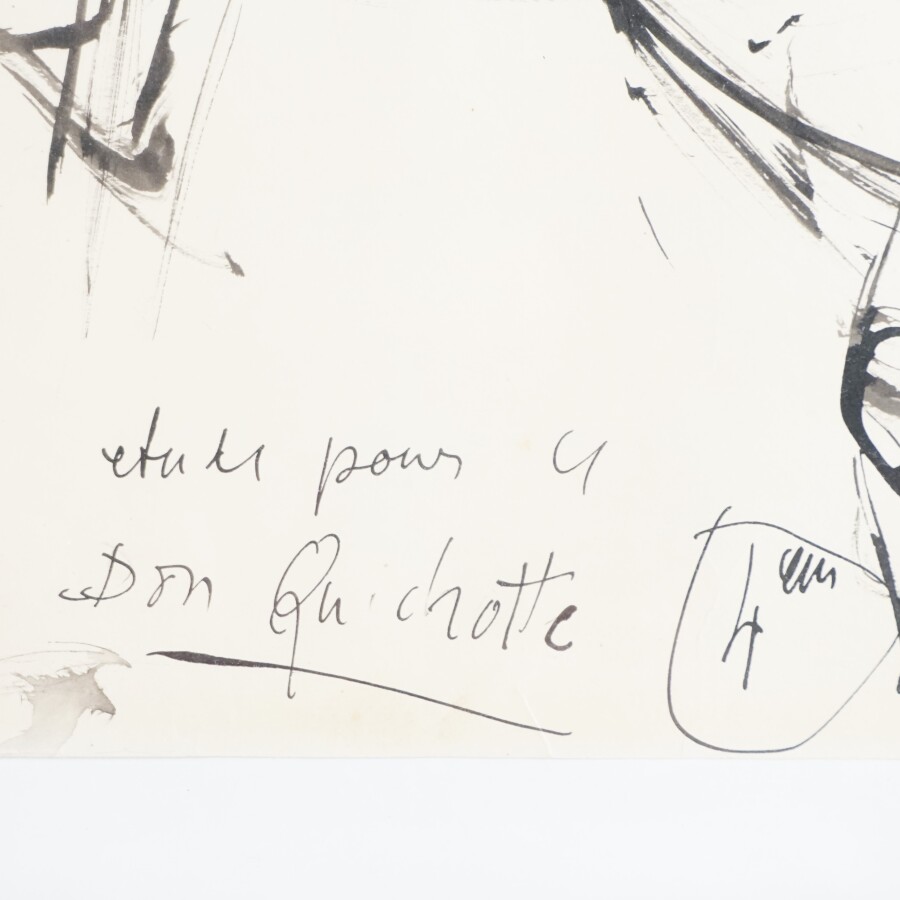 etude pour le
Don Quichotte
4 em